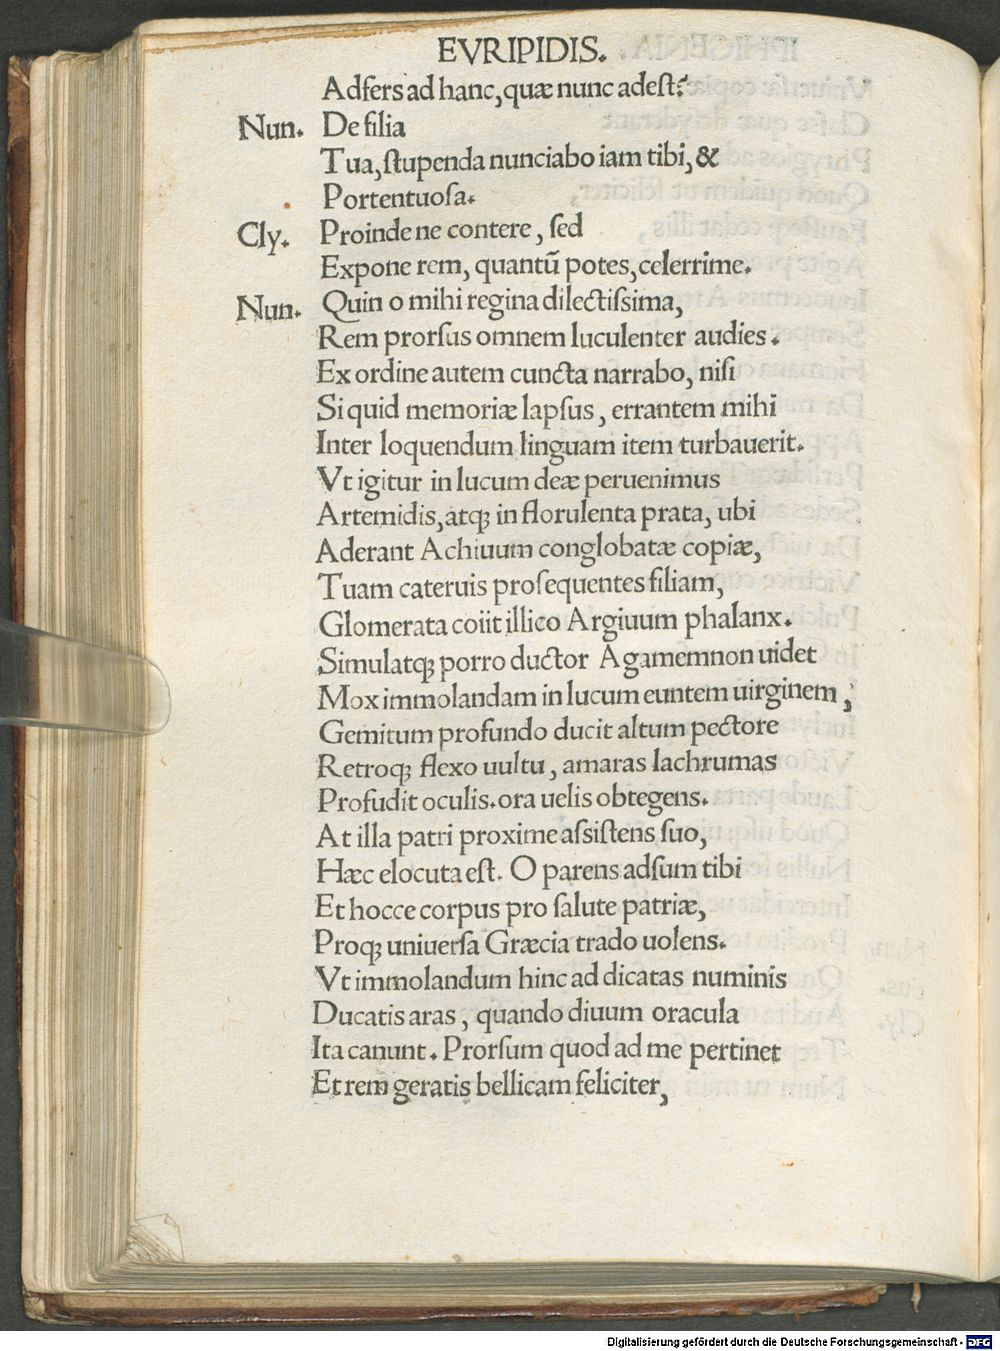 EVRIPIDIS.
Adfers ad hanc, quæ nunc adest?
Nun. De filia
Tua, ſtupenda nunciabo iam tibi, &
Portentuoſa.
Cly. Proinde ne contere, ſed
Expone rem, quantũ potes, celerrime.
Nun. Quin o mihi regina dilectiſsima,
Rem prorſus omnem luculenter audies.
Ex ordine autem cuncta narrabo, niſi
Si quid memoriæ lapſus, errantem mihi
Inter loquendum linguam item turbauerit.
Vt igitur in lucum deæ peruenimus
Artemidis, atq; in florulenta prata, ubi
Aderant Achiuum conglobatæ copiæ,
Tuam cateruis proſequentes filiam,
Glomerata coiit illico Argiuum phalanx.
Simulatq; porro ductor Agamemnon uidet
Mox immolandam in lucum euntem uirginem,
Gemitum profundo ducit altum pectore
Retroq; flexo uultu, amaras lachrumas
Profudit oculis. ora uelis obtegens.
At illa patri proxime aſsiſtens ſuo,
Hæc elocuta eſt. O parens adſum tibi
Et hocce corpus pro ſalute patriæ,
Proq; uniuerſa Græcia trado uolens.
Vt immolandum hinc ad dicatas numinis
Ducatis aras, quando diuum oracula
Ita canunt. Prorſum quod ad me pertinet
Et rem geratis bellicam feliciter,
Digitalisierung gefördert durch die Deutsche Forschungsgemeinschaft - DFG